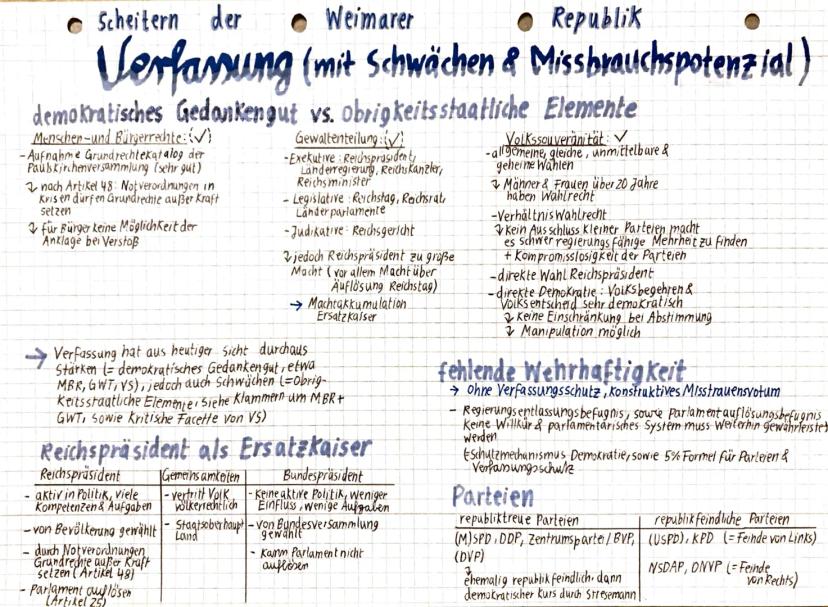 Scheitern der Weimarer Republik
Verfassung (mit Schwächen & Missbrauchspotenzial)
demokratisches Gedankengut vs. obrigkeitsstaatliche Elemente
Menschen- und Bürgerrechte: (✓)
- Aufnahme Grundrechtekatalog der
Paulskirchenversammlung (sehr gut)
↯ nach Artikel 48: Notverordnungen in
Krisen dürfen Grundrechte außer Kraft
setzen
↯ für Bürger keine Möglichkeit der
Anklage bei Verstoß
Gewaltenteilung: (✓)
- Exekutive: Reichspräsident,
Länderregierung, Reichskanzler,
Reichsminister
- Legislative: Reichstag, Reichsrat,
Länderparlamente
- Judikative: Reichsgericht
↯ jedoch Reichspräsident zu große
Macht (vor allem Macht über
Auflösung Reichstag)
→ Machtakkumulation
Ersatzkaiser
Volkssouveränität: ✓
- allgemeine, gleiche, unmittelbare &
geheime Wahlen
↯ Männer & Frauen über 20 Jahre
haben Wahlrecht
- Verhältniswahlrecht
↯ kein Ausschluss kleiner Parteien macht
es schwer regierungsfähige Mehrheit zu finden
+ Kompromisslosigkeit der Parteien
- direkte Wahl Reichspräsident
- direkte Demokratie: Volksbegehren &
Volksentscheid sehr demokratisch
↯ keine Einschränkung bei Abstimmung
↯ Manipulation möglich
→ Verfassung hat aus heutiger Sicht durchaus
Stärken (= demokratisches Gedankengut, etwa
MBR, GWT, VS), jedoch auch Schwächen (= Obrig-
keitsstaatliche Elemente, siehe Klammern um MBR +
GWT, sowie Kritische Facette von VS)
fehlende Wehrhaftigkeit
→ ohne Verfassungsschutz, konstruktives Misstrauensvotum
- Regierungsentlassungsbefugnis, sowie Parlamentauflösungsbefugnis
keine Willkür & parlamentarisches System muss weiterhin gewährleistet
werden
Schutzmechanismus Demokratie, sowie 5% Formel für Parteien &
Verfassungsschutz
Reichspräsident als Ersatzkaiser
Reichspräsident Gemeinsamkeiten Bundespräsident
- aktiv in Politik, viele
Kompetenzen & Aufgaben
- von Bevölkerung gewählt
- durch Notverordnungen
Grundrechte außer Kraft
setzen (Artikel 48)
- Parlament auflösen
(Artikel 25)
- vertritt Volk
völkerrechtlich
- Staatsoberhaupt
Land
- keine aktive Politik, weniger
Einfluss, wenige Aufgaben
- von Bundesversammlung
gewählt
- kann Parlament nicht
auflösen
Parteien
republiktreue Parteien republikfeindliche Parteien
(M)SPD, DDP, Zentrumspartei/BVP,
(DVP)
↯
ehemalig republikfeindlich, dann
demokratischer Kurs durch Stresemann
(USPD), KPD (= Feinde von Links)
NSDAP, DNVP (= Feinde
von Rechts)